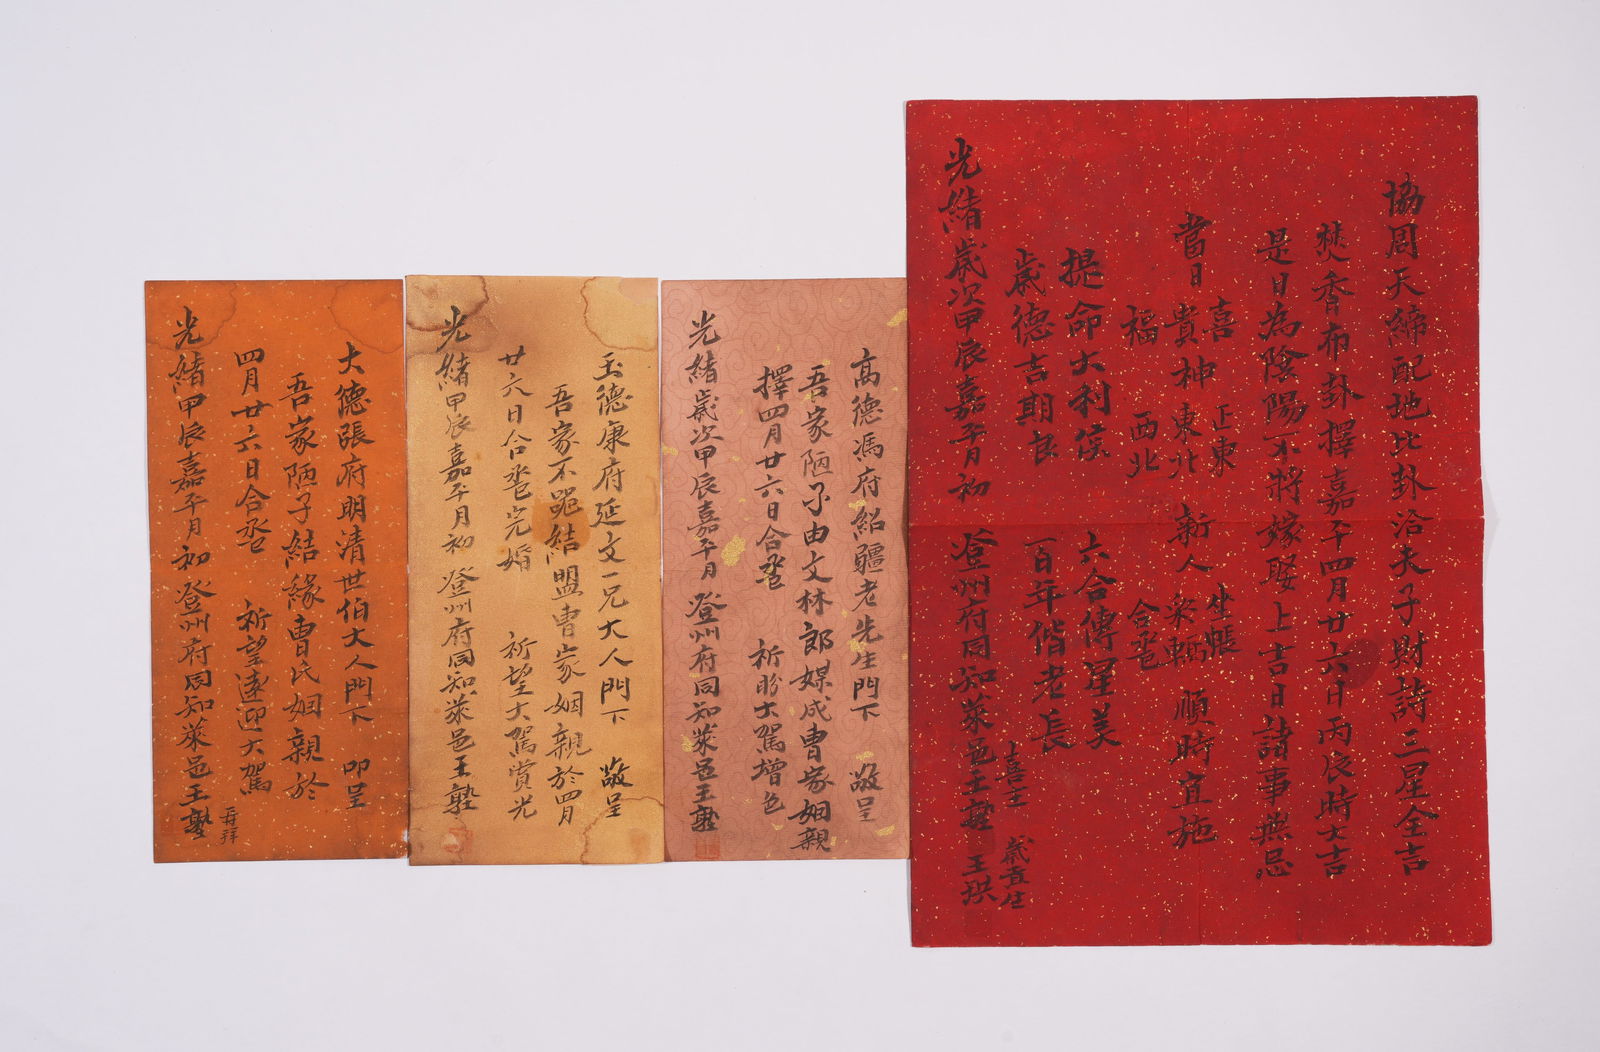 協周天締配地比卦洽夫子財詩三星全吉
焚香布卦擇嘉平四月廿六日丙辰時大吉
是日為陰陽不將嫁娶上吉日諸事無忌
喜 正東 坐帳
當日貴神東北 新人 順時宜施
福 西北 合卺
提命大利侯 六合傳星美
歲德吉期良 百年偕老長
喜主 歲貢生
光緒歲次甲辰嘉平月初 登州府同知萊邑王塾 王珙
高德馮府紹疆老先生門下 敬呈
吾家陋子由文林郎媒成曹家姻親
擇四月廿六日合卺 祈盼大駕增色
光緒歲次甲辰嘉平月 登州府同知萊邑王塾
玉德康府延文一兄大人門下 敬呈
吾家不器結盟曹家姻親於四月
廿六日合卺完婚 祈望大駕賞光
光緒甲辰嘉平月初 登州府同知萊邑王塾
大德張府明清世伯大人門下 叩呈
吾家陋子結緣曹氏姻親於
四月廿六日合卺 祈望遠迎大駕
再拜
光緒甲辰嘉平月初 登州府同知萊邑王塾